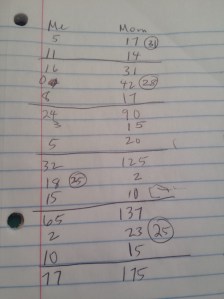 Me Mom
5 17 (31)
11 14
16 31
0 42 (25)
8 17
24 90
3 15
5 20
32 125
18 (25) 2
15 10
65 137
2 23 (25)
10 15
77 175